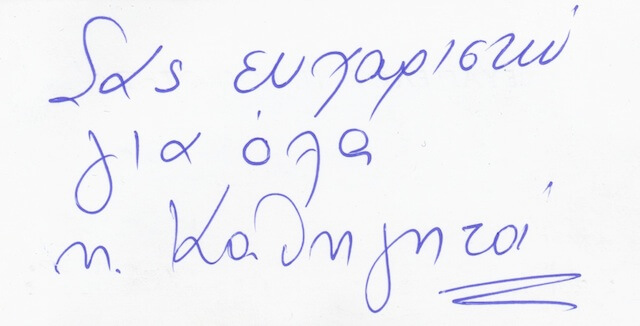 Σας ευχαριστώ
για όλα
κ. Καθηγητά